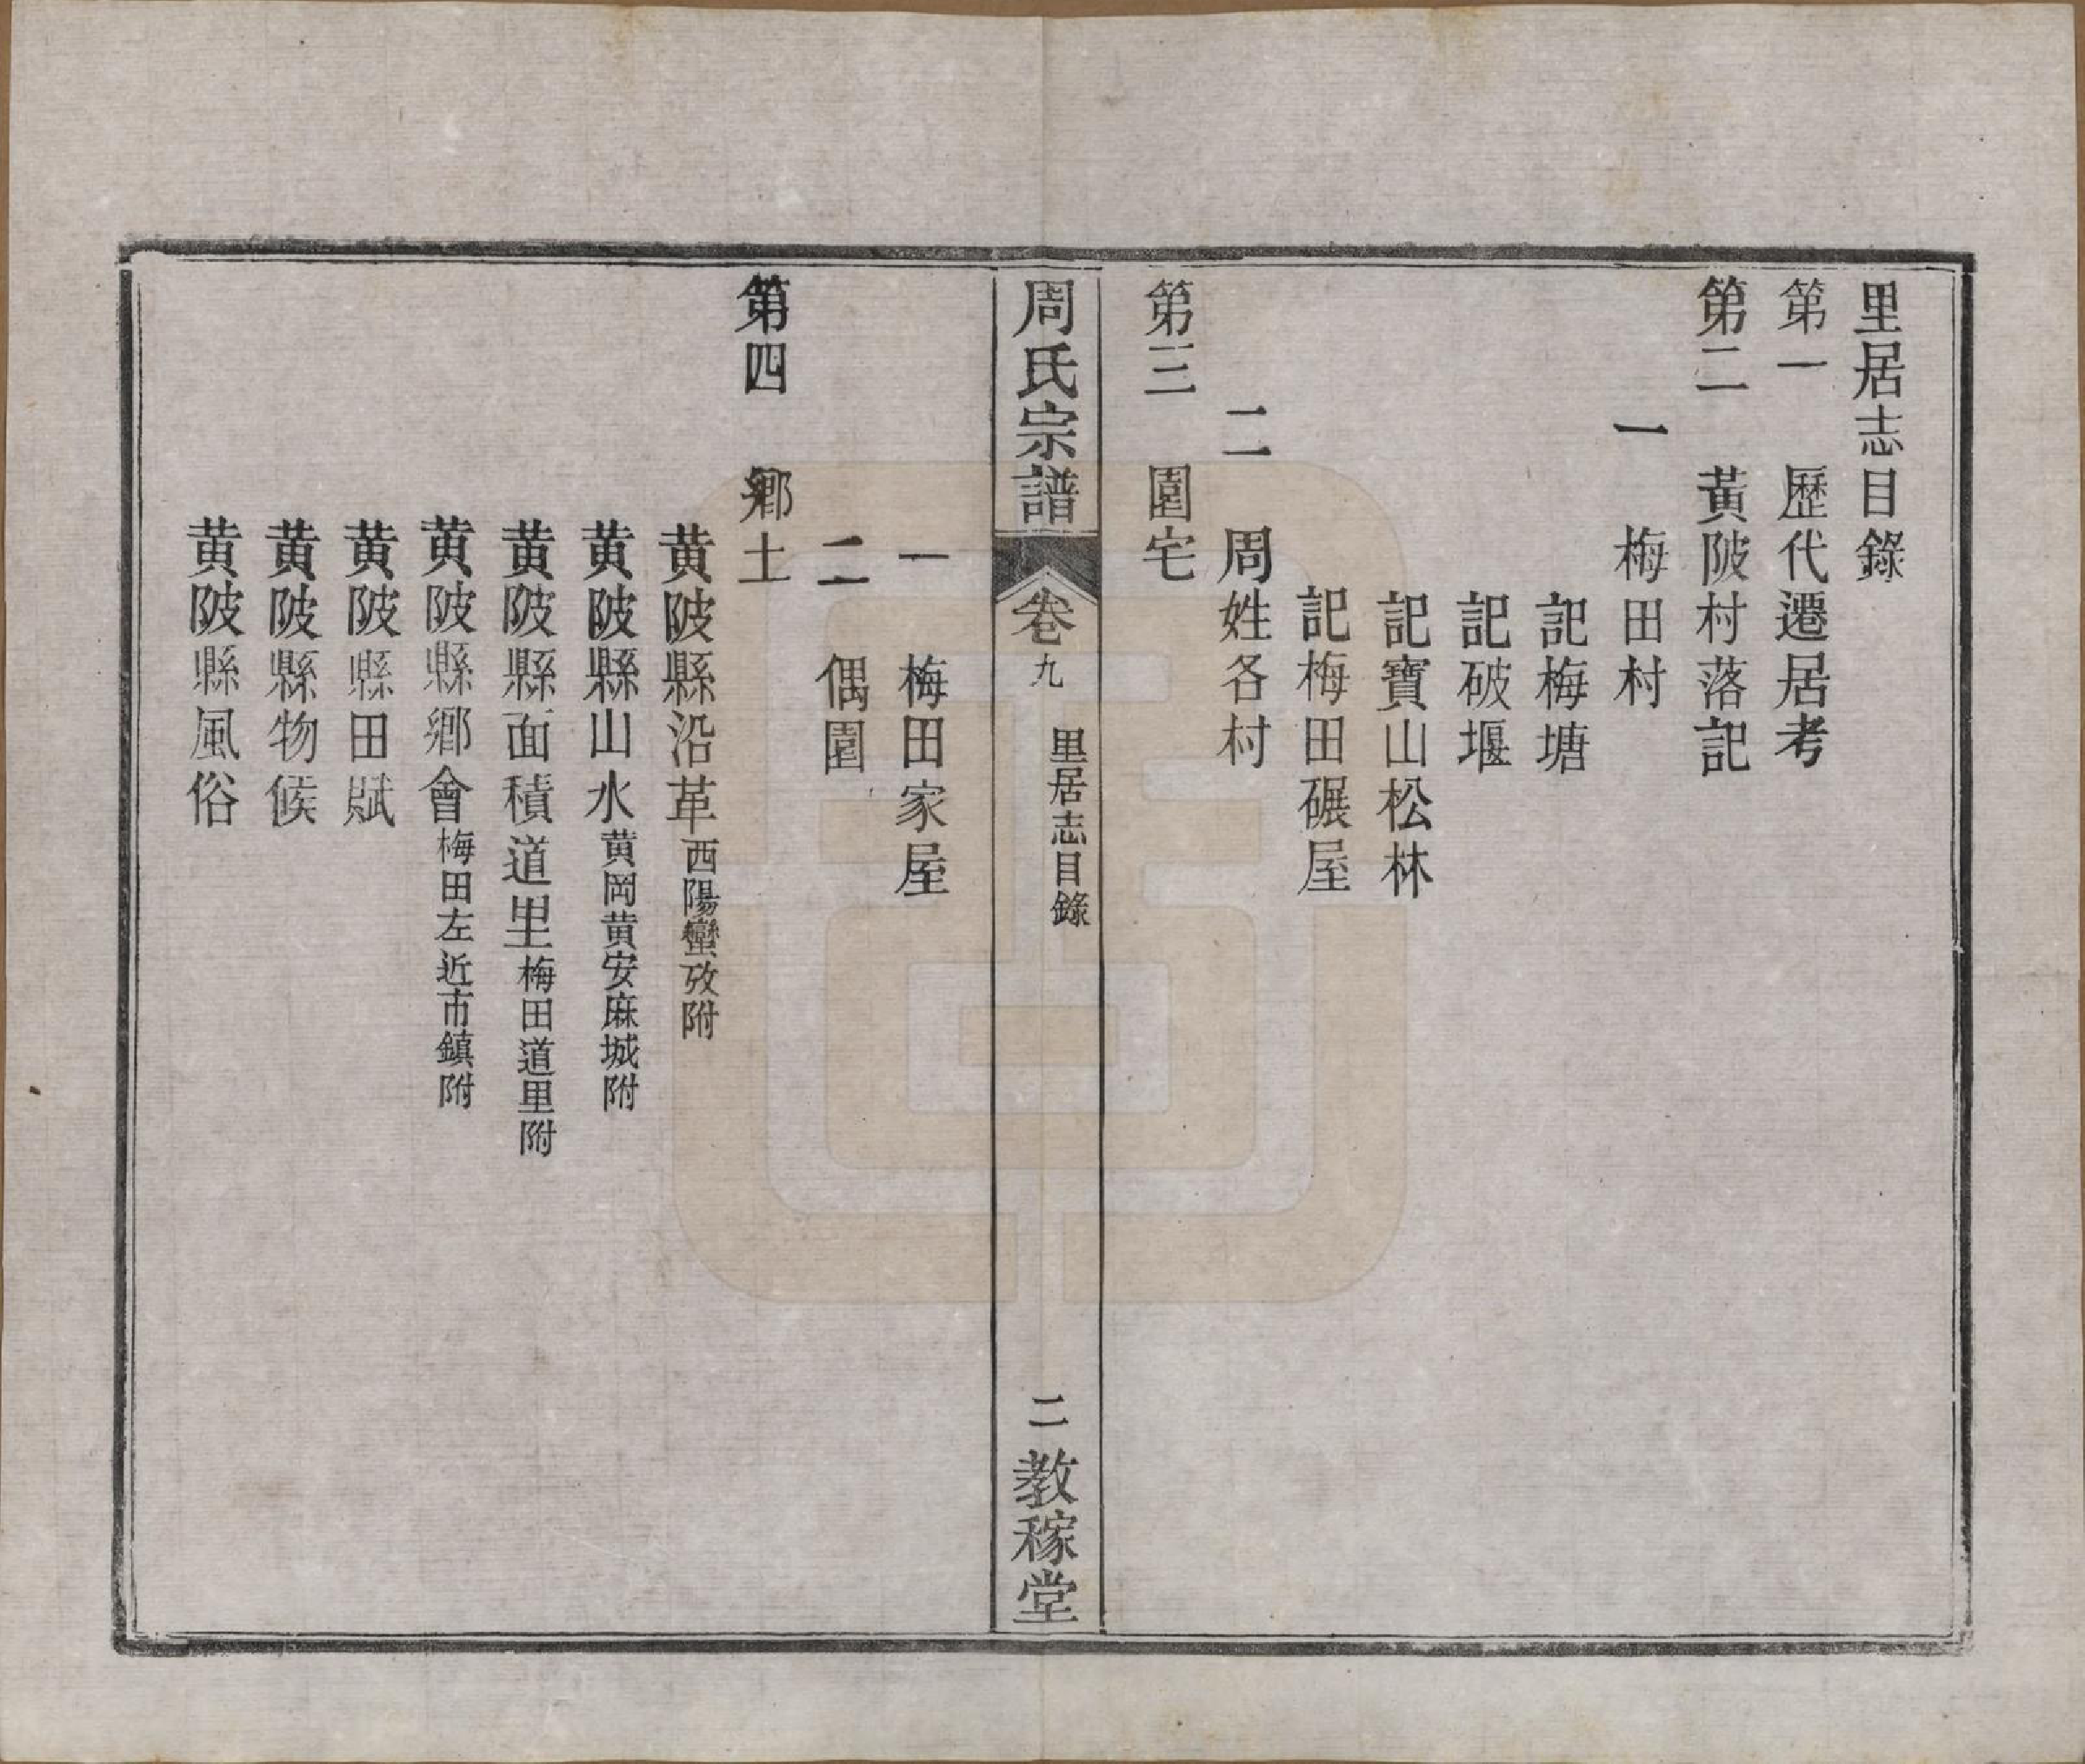 里居志目錄
第一　歷代遷居考
第二　黃陂村落記
一　梅田村
記梅塘
記破堰
記寶山松林
記梅田碾屋
二　周姓各村
第三　園宅
周氏宗譜　卷九　里居志目錄　二　教稼堂
一　梅田家屋
二　偶園
第四　鄉土
黃陂縣沿革西陽蠻攷附
黃陂縣山水黃岡黃安麻城附
黃陂縣面積道里梅田道里附
黃陂縣鄉會梅田左近市鎮附
黃陂縣田賦
黃陂縣物候
黃陂縣風俗